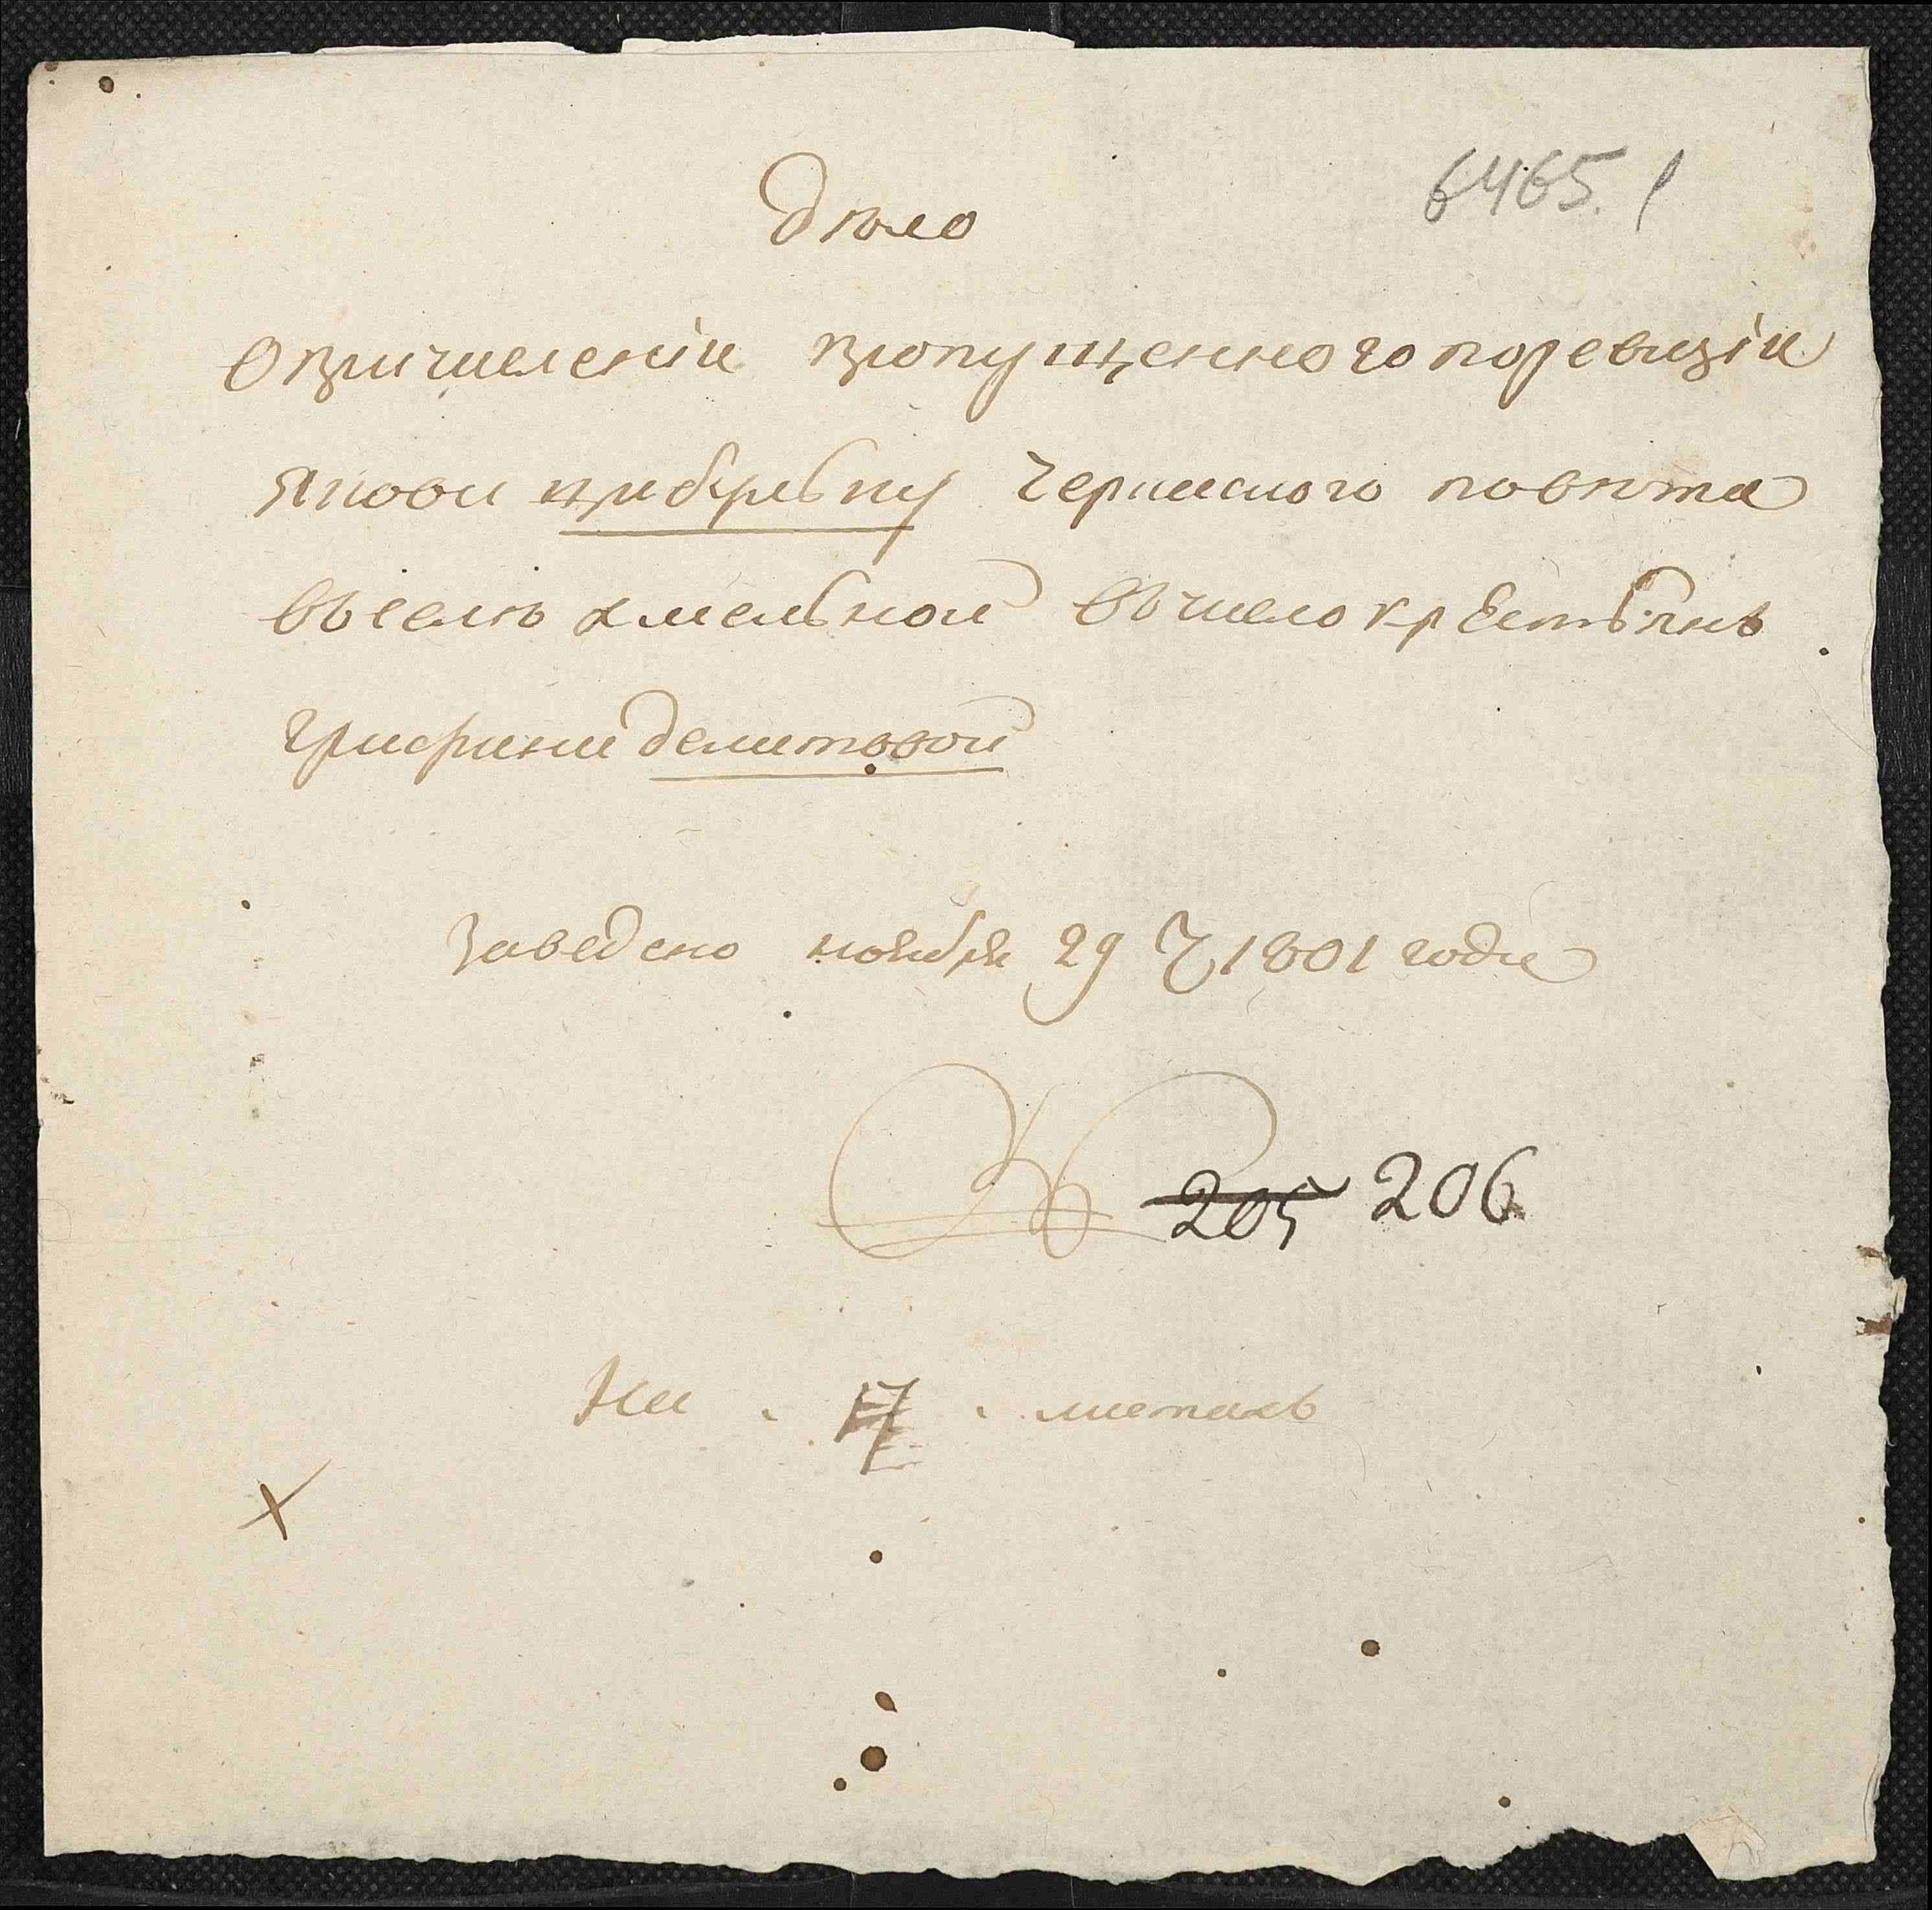 6465. 1
дѣло
О причисленіи пропущенного поревизіи
Якова Черкаского повѣта
въселѣ хмельной въчисло крестьянъ
графини
Заведено ноября 29 Ч 1801 года
205 206
На 17 листахъ